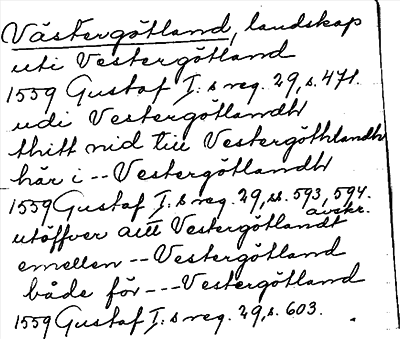 Västergötland, landskap
uti Vestergötland
1559 Gustaf I:s reg. 29, s. 471.
udi Vestergötlandh
thitt nid till Vestergöthlandh
här i -- Vestergötlandh
1559 Gustaf I:s reg. 29, ss. 593, 594.
avskr.
utöffver allt Vestergötlandt
emellen -- Vestergötland
både för --- Vestergötland
1559 Gustaf I:s reg. 29, s. 603.